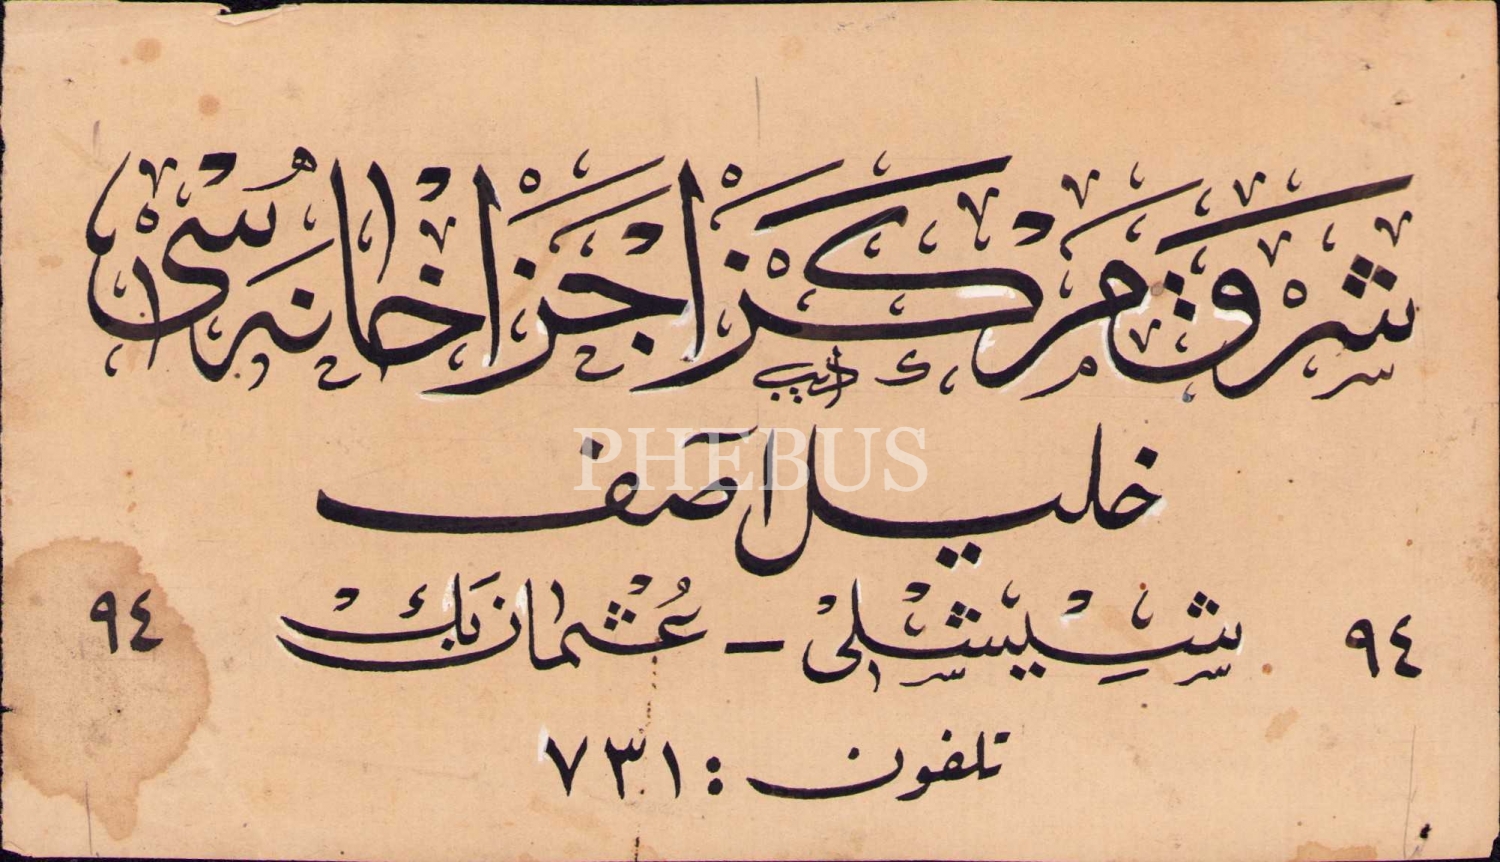 شرق مركز اجزاخانه سی
اديب
خليل آصف
٩٤ شيشلی – عثمان بك ٩٤
تلفون : ٧٣١
PHEBUS